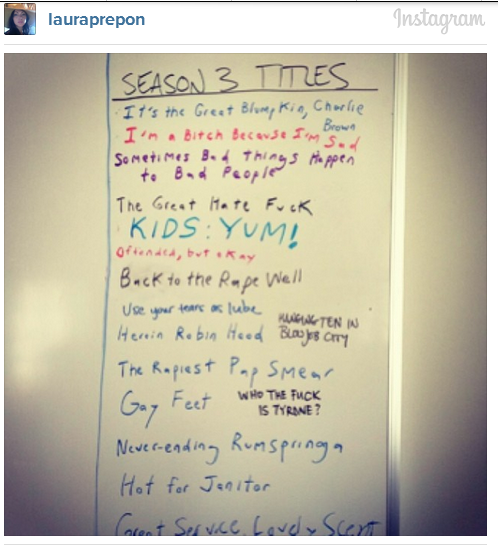 lauraprepon
Instagram
SEASON 3 TITLES
It's the Great Blumpkin, Charlie
Brown
I'm a Bitch Because I'm Sad
Sometimes Bad Things Happen
to Bad People
The Great Hate Fuck
KIDS: YUM!
Offended, but okay
Back to the Rape Well
Use your tears as lube
Heroin Robin Hood
HANGING TEN IN
BLOWJOB CITY
The Rapiest Pap Smear
Gay Feet
WHO THE FUCK
IS TYRONE?
Never-ending Rumspringa
Hot for Janitor
Great Service, Lovely Scent